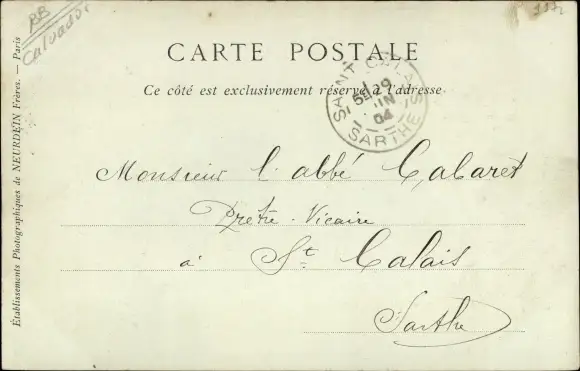 RB
Calvados
CARTE POSTALE
Ce côté est exclusivement réservé à l'adresse
SAINT CALAIS
5E 29
JUIN
04
SARTHE
Monsieur l'abbé Cabaret
Prêtre-Vicaire
à St Calais
Sarthe
Établissements Photographiques de NEURDEIN Frères. — Paris